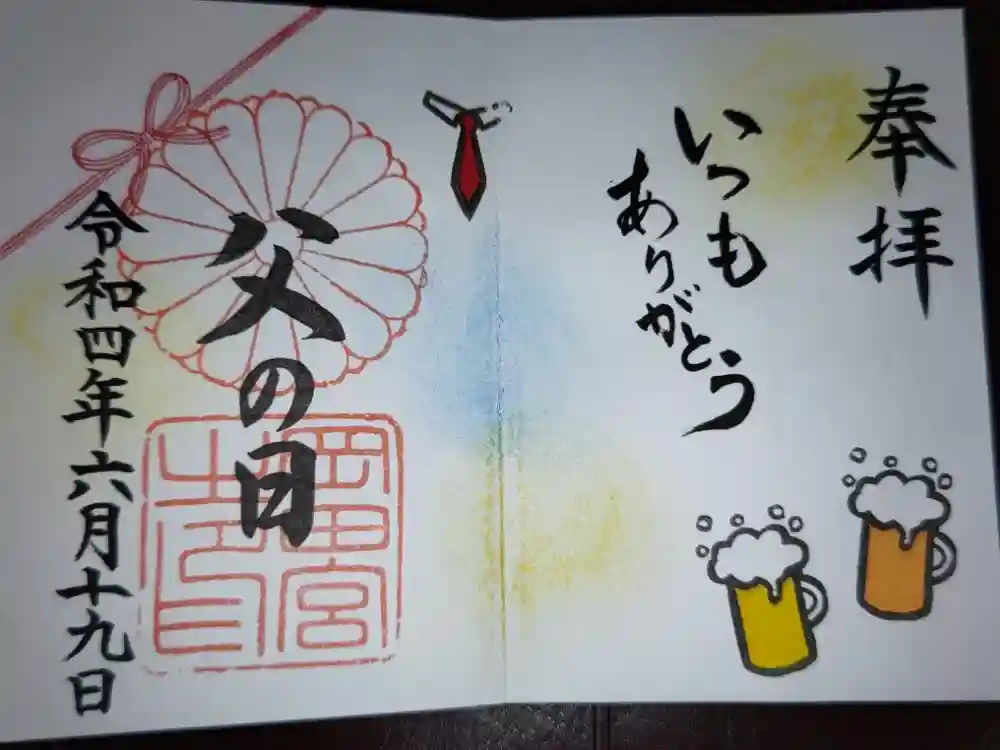 奉拝
いつも
ありがとう
父の日
岡田宮
之印
令和四年六月十九日